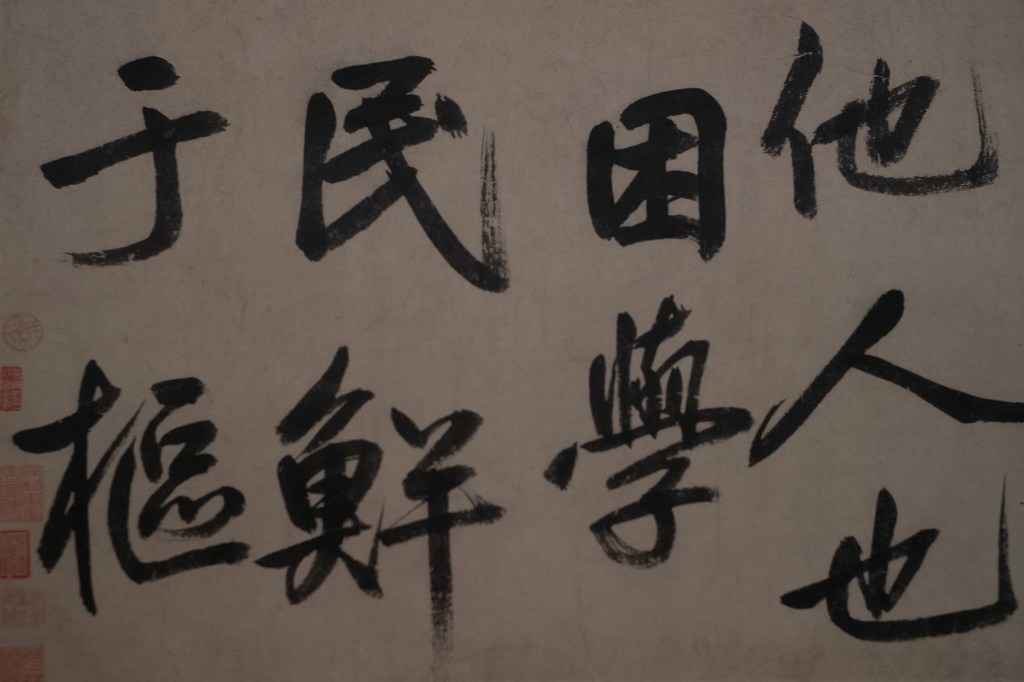 他人也
困學
民鮮
于樞